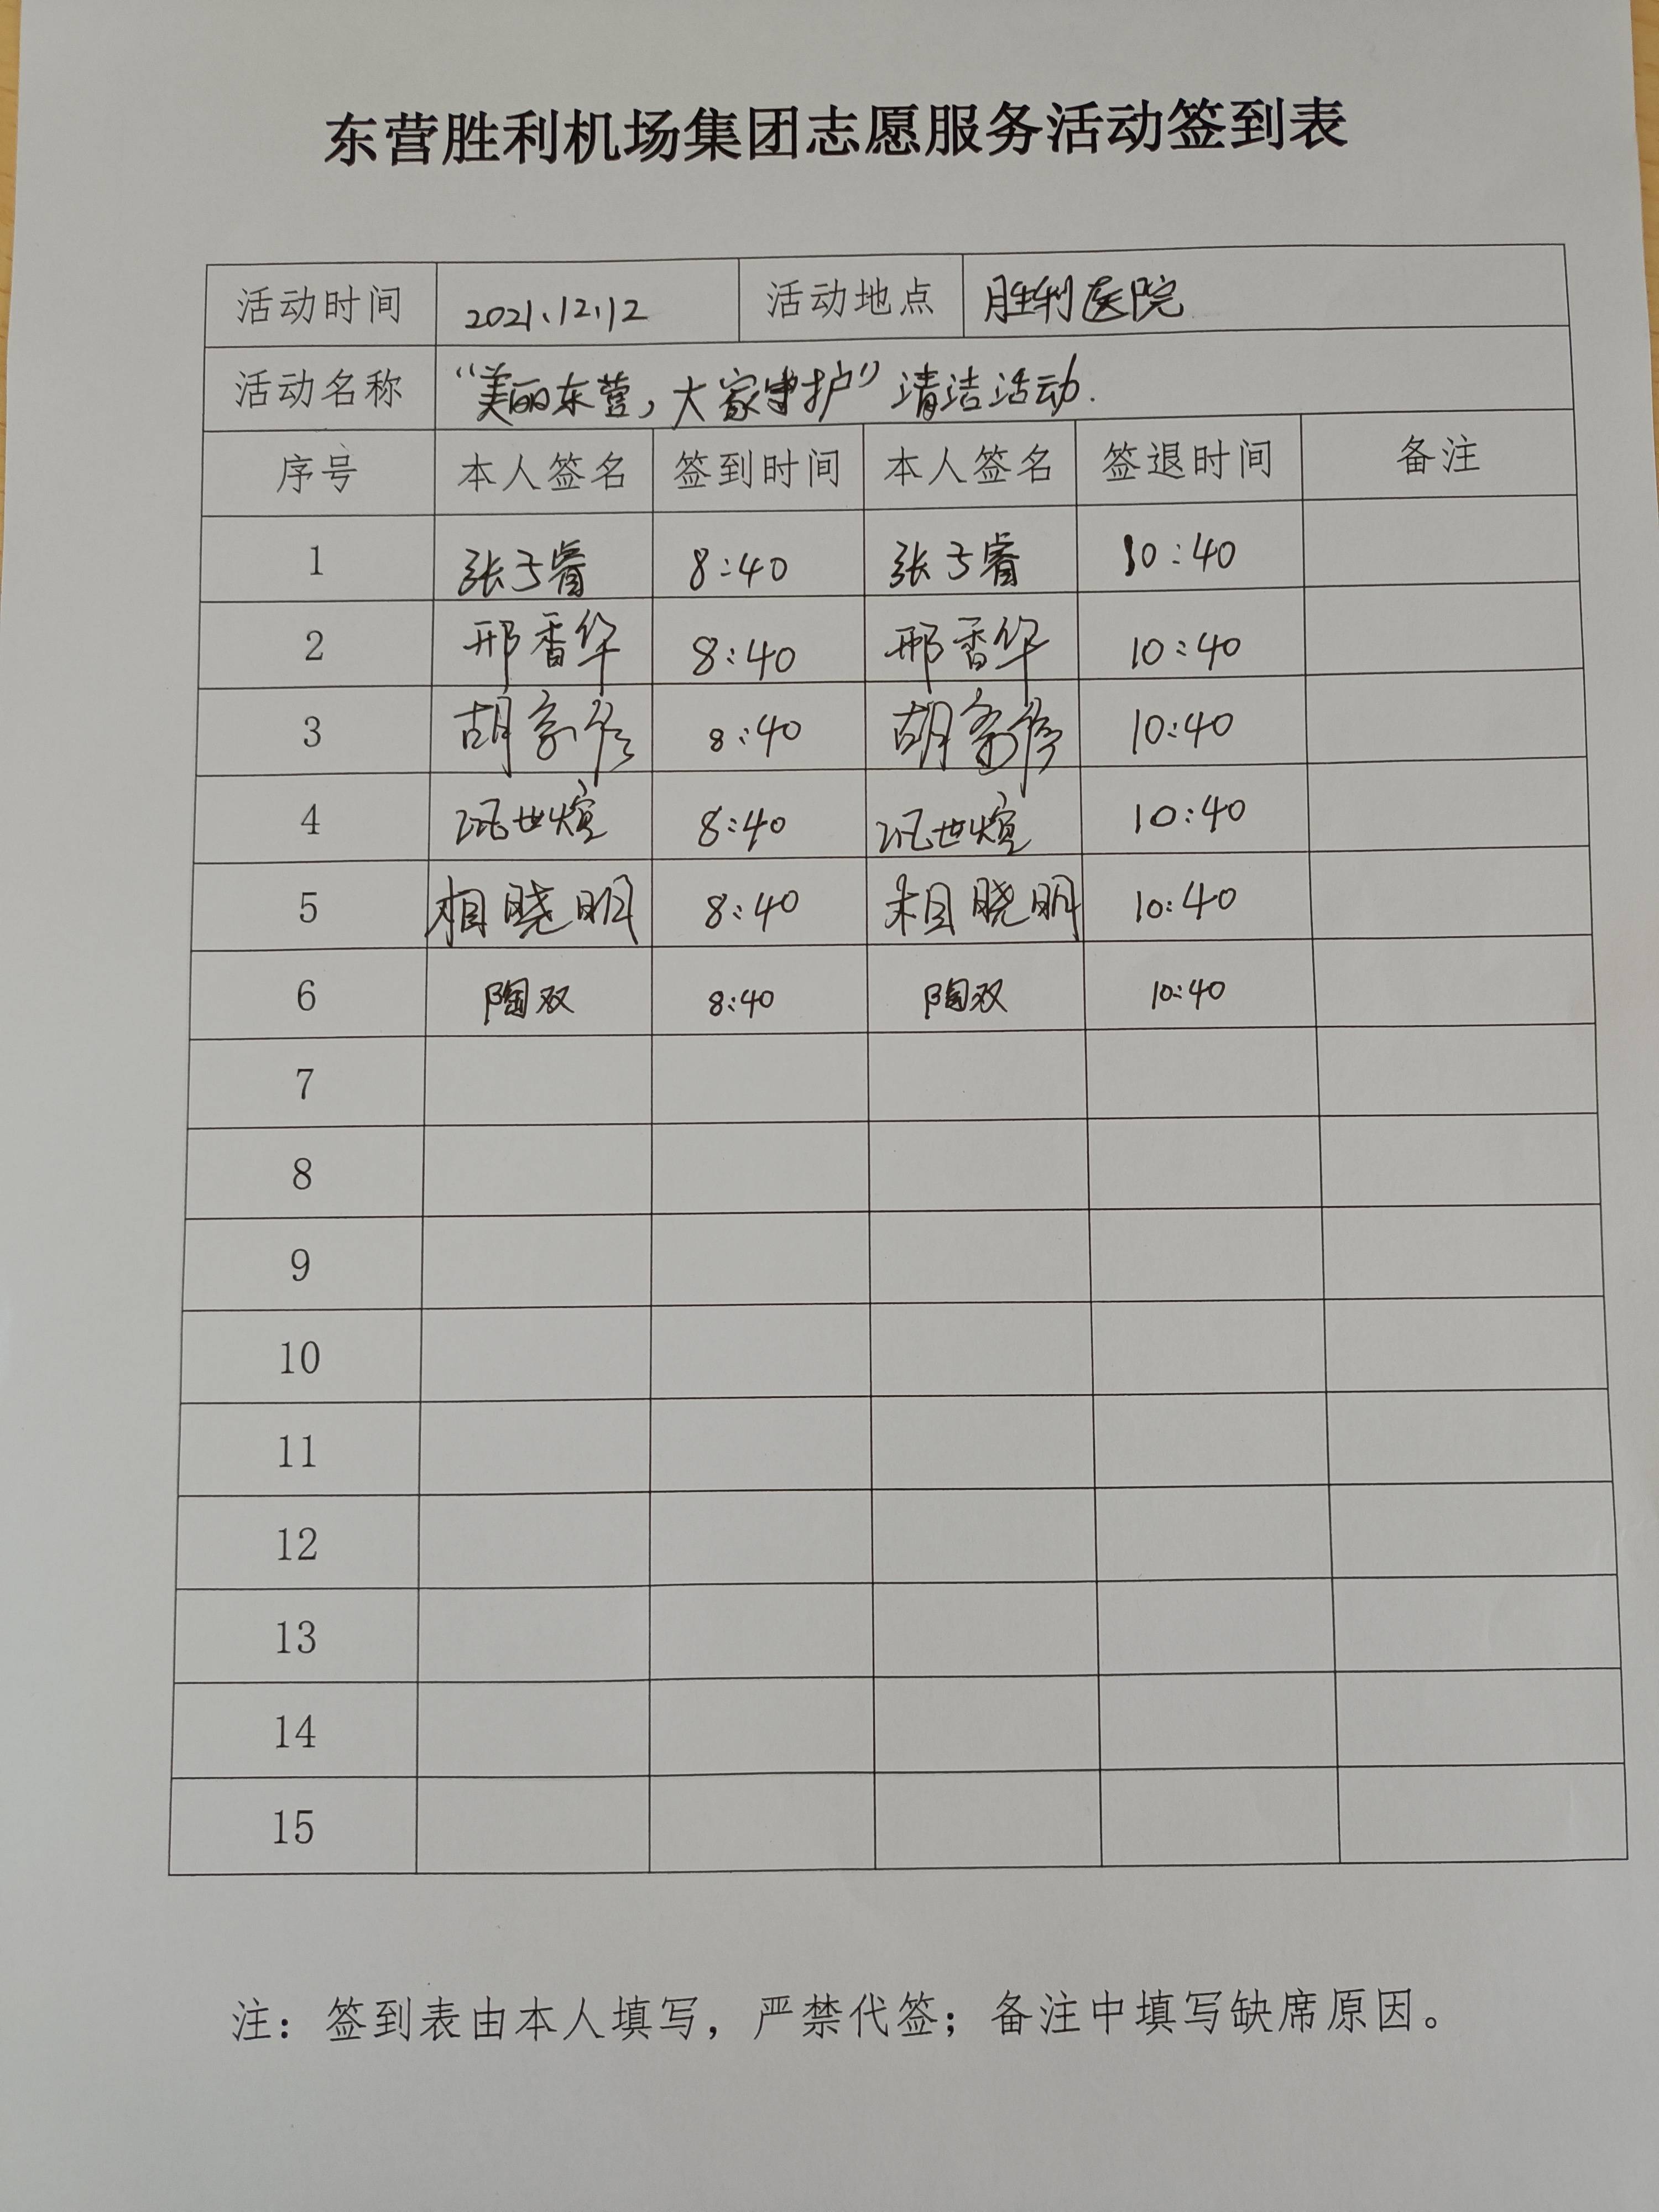 东营胜利机场集团志愿服务活动签到表
活动时间 2021.12.12 活动地点 胜利医院
活动名称 “美丽东营,大家守护”清洁活动.
序号 本人签名 签到时间 本人签名 签退时间 备注
1 张子睿 8:40 张子睿 10:40
2 邢香华 8:40 邢香华 10:40
3 胡 8:40 胡 10:40
4 世煊 8:40 世煊 10:40
5 相晓明 8:40 相晓明 10:40
6 陶双 8:40 陶双 10:40
7
8
9
10
11
12
13
14
15
注：签到表由本人填写，严禁代签；备注中填写缺席原因。